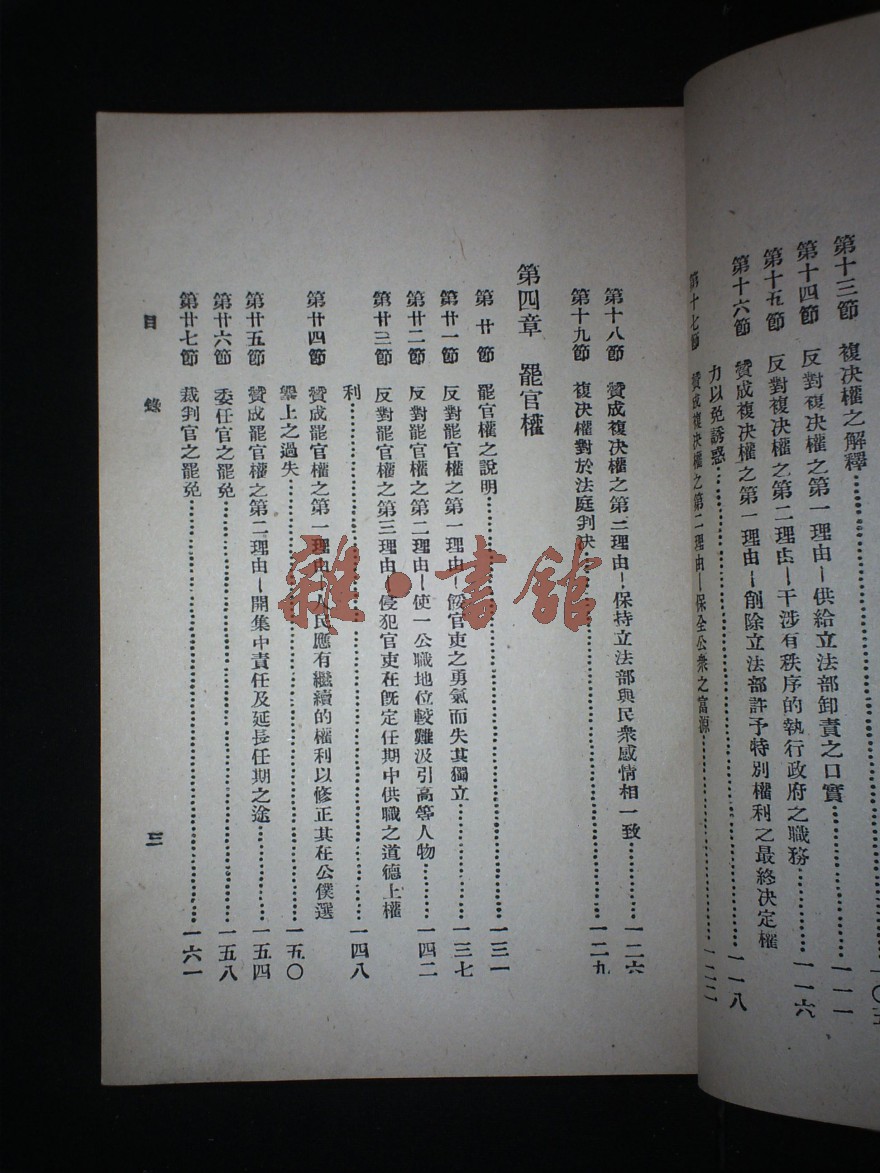 第十三節　複決權之解釋………一〇五
第十四節　反對複決權之第一理由—供給立法部卸責之口實………一一一
第十五節　反對複決權之第二理由—干涉有秩序的執行政府之職務………一一六
第十六節　贊成複決權之第一理由—削除立法部許予特別權利之最終決定權
力以免誘惑………一一八
第十七節　贊成複決權之第二理由—保全公衆之富源………一二二
第十八節　贊成複決權之第三理由—保持立法部與民衆感情相一致………一二六
第十九節　複決權對於法庭判決………一二九
第四章　罷官權
第廿節　罷官權之說明………一三一
第廿一節　反對罷官權之第一理由—餒官吏之勇氣而失其獨立………一三七
第廿二節　反對罷官權之第二理由—使一公職地位較難汲引高等人物………一四二
第廿三節　反對罷官權之第三理由—侵犯官吏在旣定任期中供職之道德上權
利………一四八
第廿四節　贊成罷官權之第一理由—人民應有繼續的權利以修正其在公僕選
舉上之過失………一五〇
第廿五節　贊成罷官權之第二理由—開集中責任及延長任期之途………一五四
第廿六節　委任官之罷免………一五八
第廿七節　裁判官之罷免………一六一
目錄　三
雜·書館